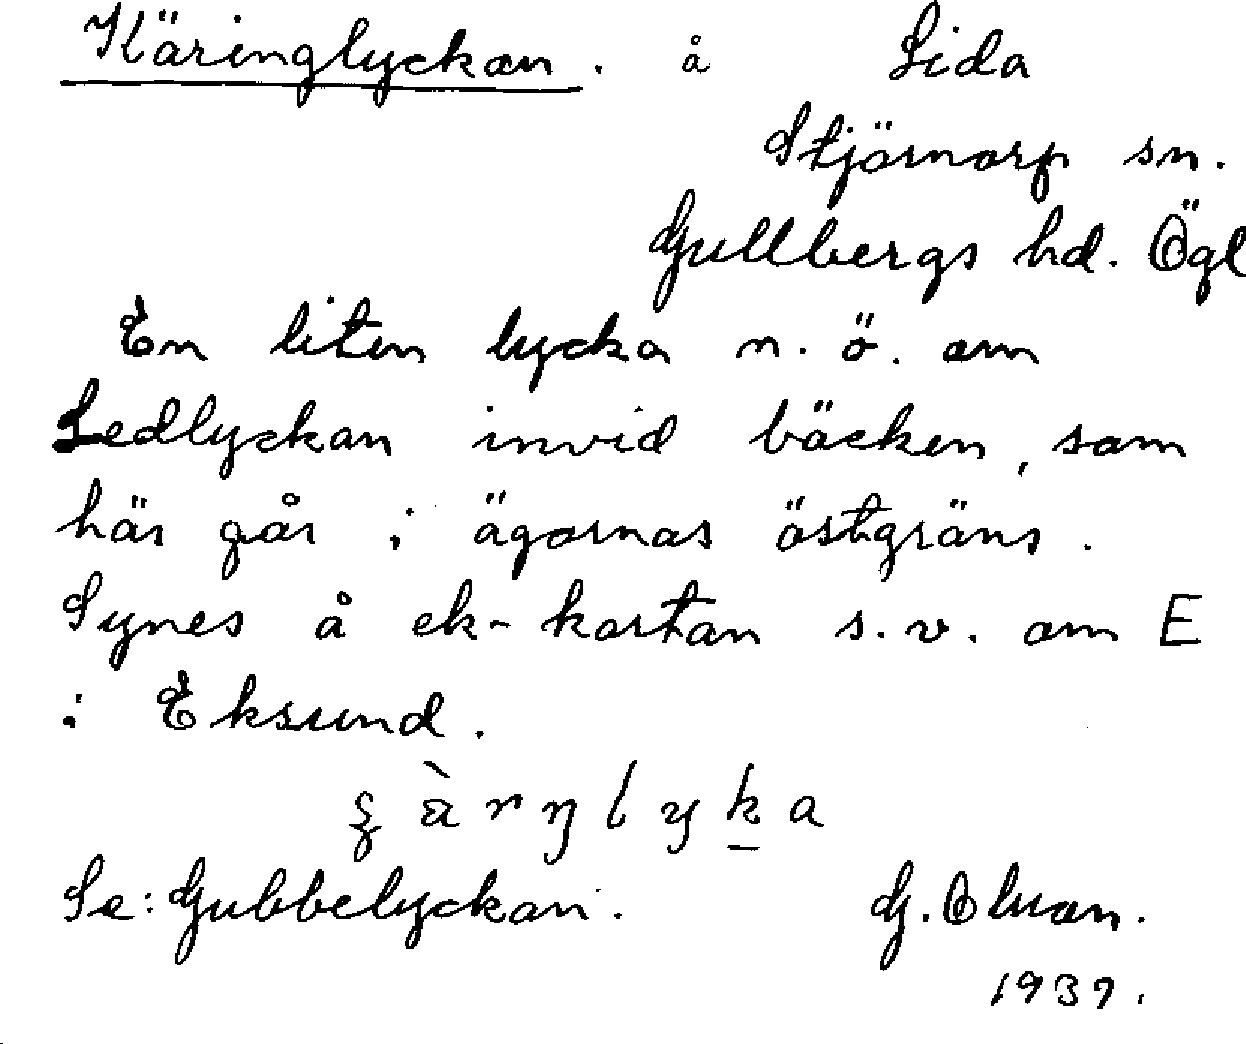 Käringlyckan. å Lida
Stjärnorp sn.
Gullbergs hd. Ögl
En liten lycka n.ö. om
Ledlyckan invid bäcken, som
här går i ägornas östgräns.
Synes å ek-kartan s.v. om E
i Eksund.
Se: Gubbelyckan. G.
1939.